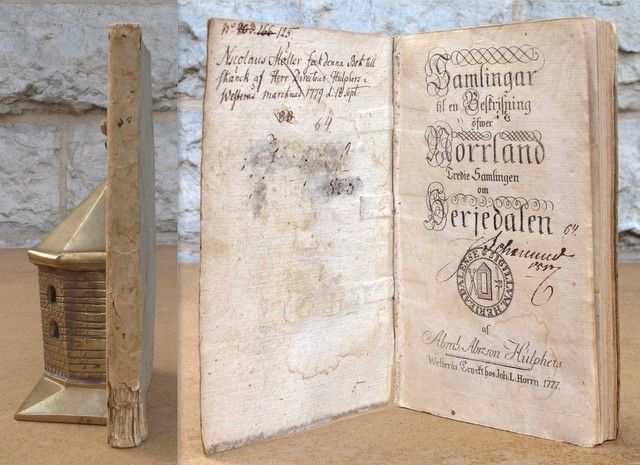 N° 125.
Nicolaus Möller feck denna Bok till
skänck af Herr Directeur Hulphers i
Westerås marcknad 1779 d. 18 Sept.
64.
Samlingar
til en Beskrifning
öfwer
Norrland
Tredie Samlingen
om
Herjedalen
64.
SIGILLUM.
af
Abrah. Abr:son Hülphers
Westerås Tryckt hos Joh. L. Horrn. 1777.
5